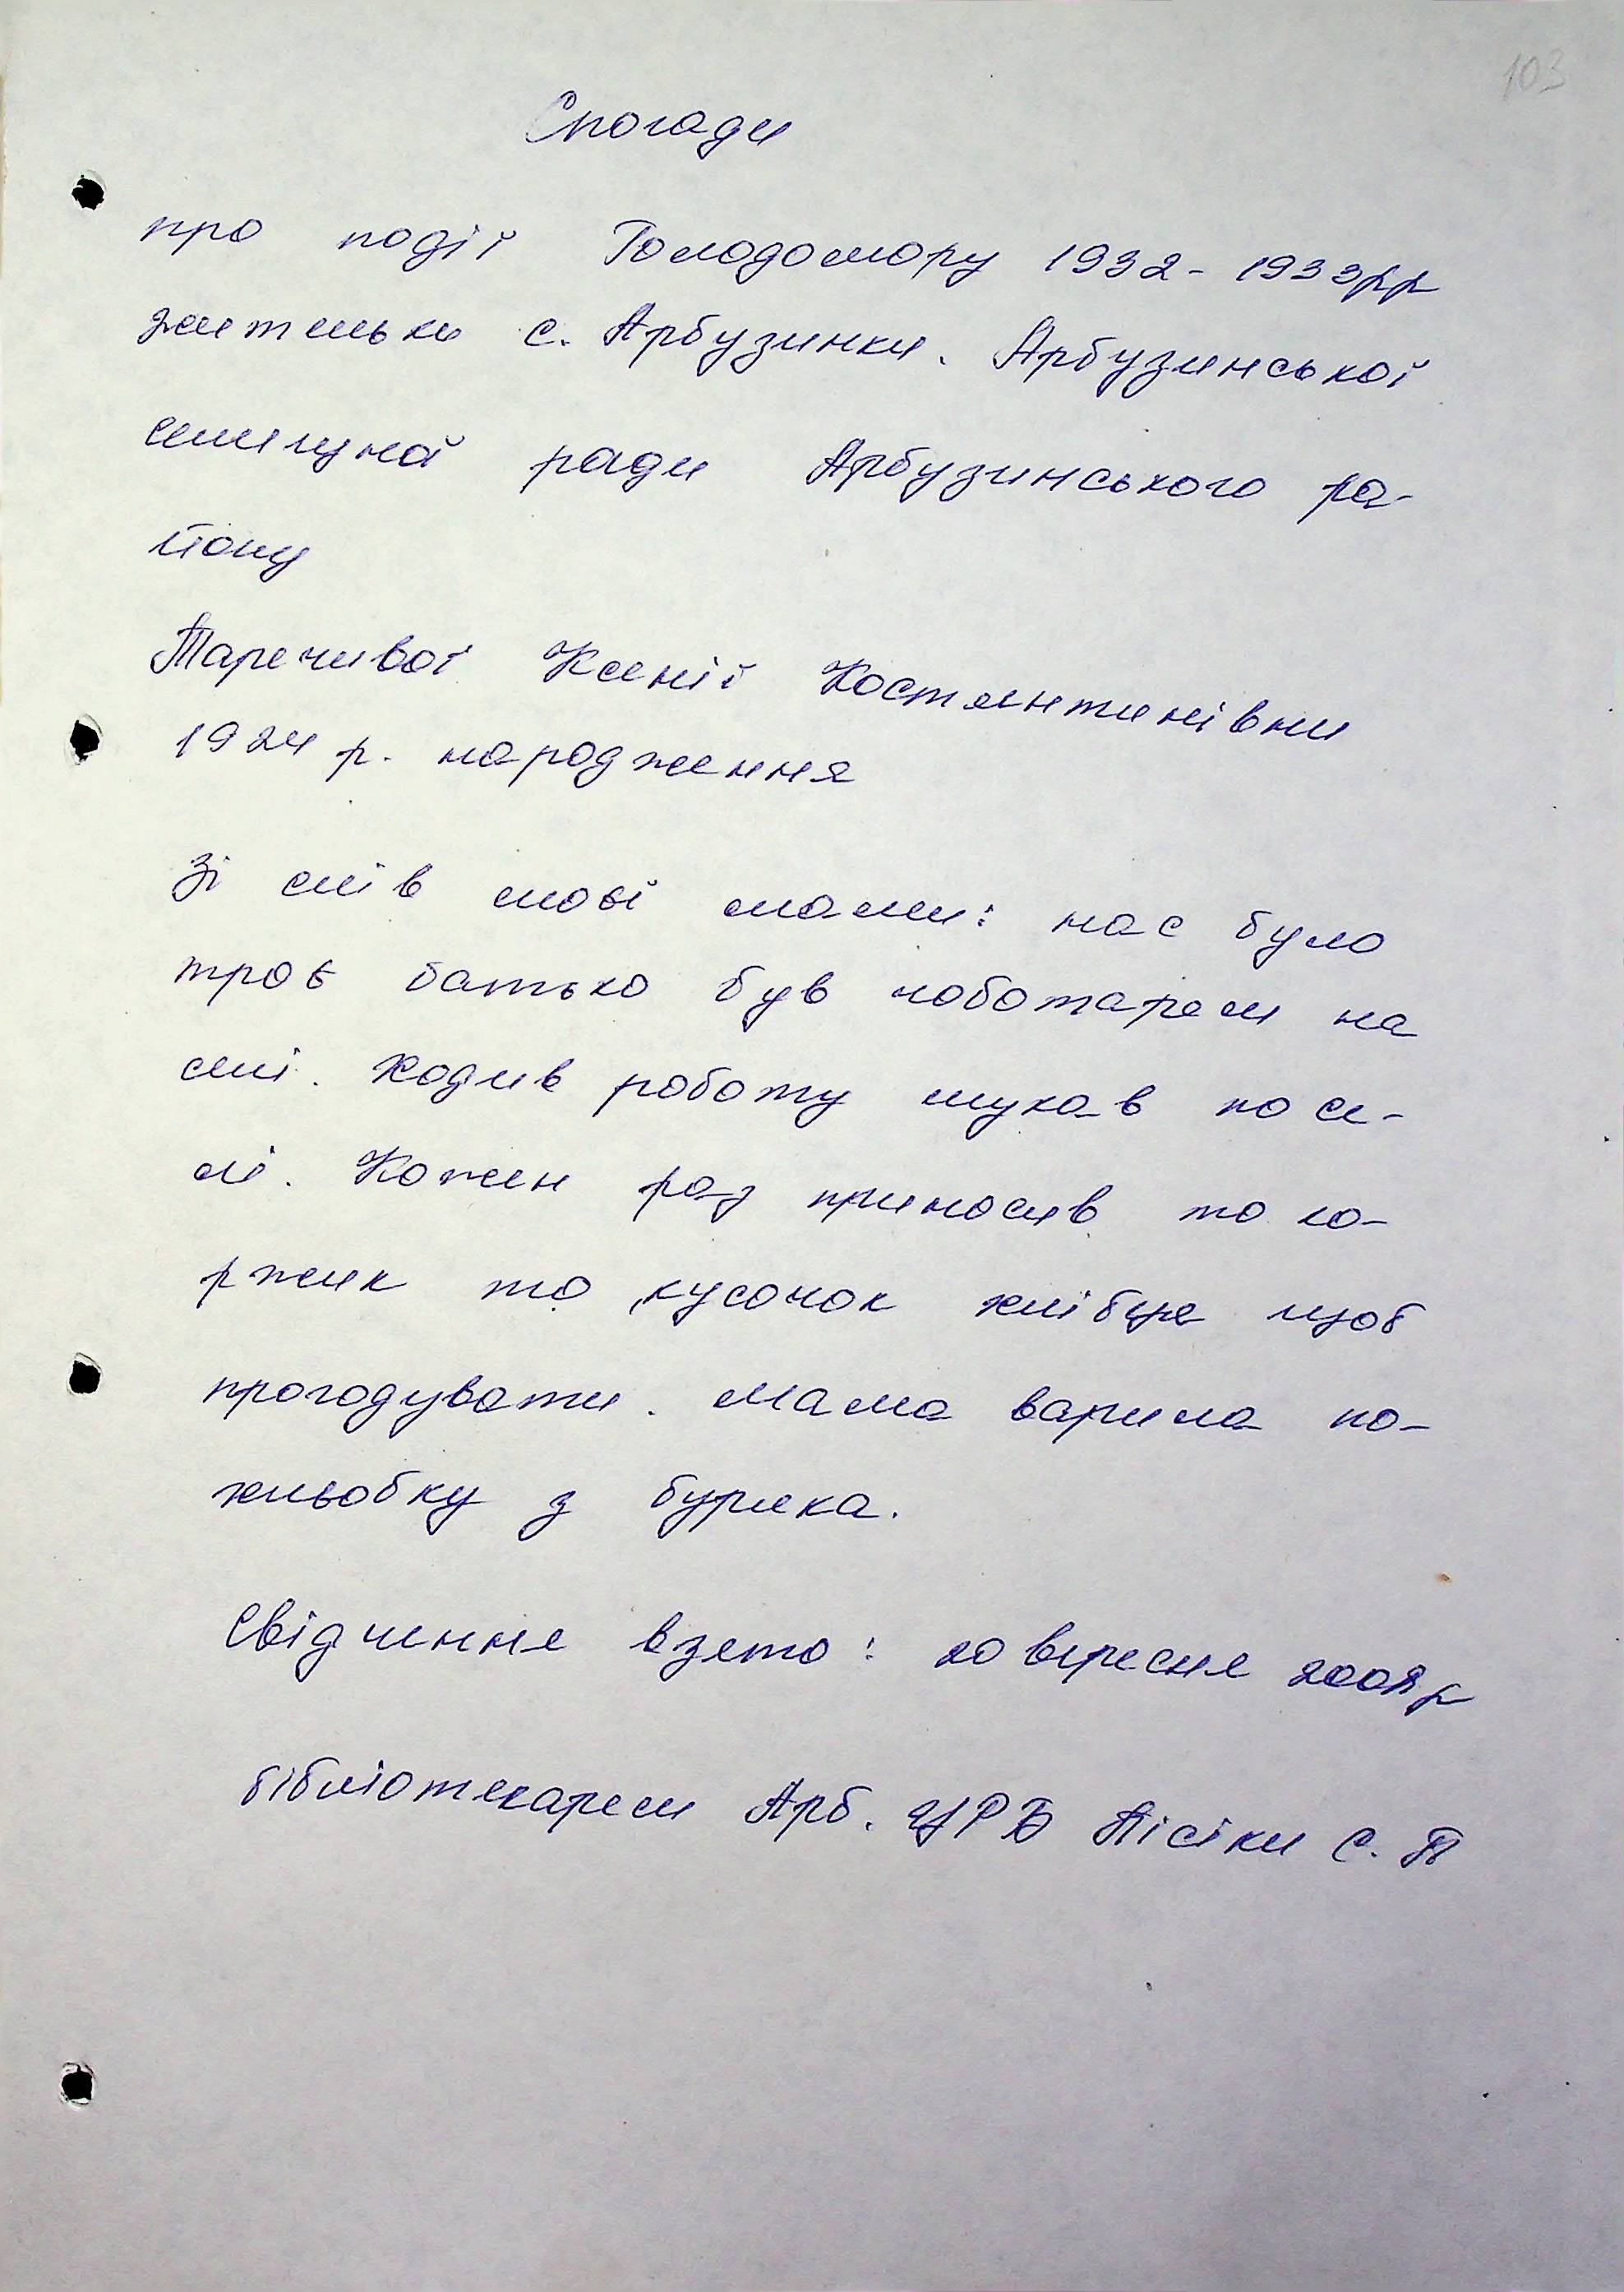 103
Спогади
про події Голодомору 1932-1933рр
жительки с. Арбузинки. Арбузинської
селищної ради Арбузинського ра-
йону
Таречивої Ксенії Костянтинівни
1924 р. народження
Зі слів моєї мами: нас було
троє батько був чоботарем на
селі. Ходив роботу шукав по се-
лі. Кожен раз приносив то ко-
ржик то кусочок хлібця щоб
прогодувати. Мама варила по-
хльобку з буряка.
Свідчення взято: 20 вересня 2008р
бібліотекарем Арб. ЦРБ Лісіки С. П